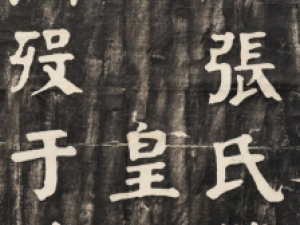 張氏
皇
殁于